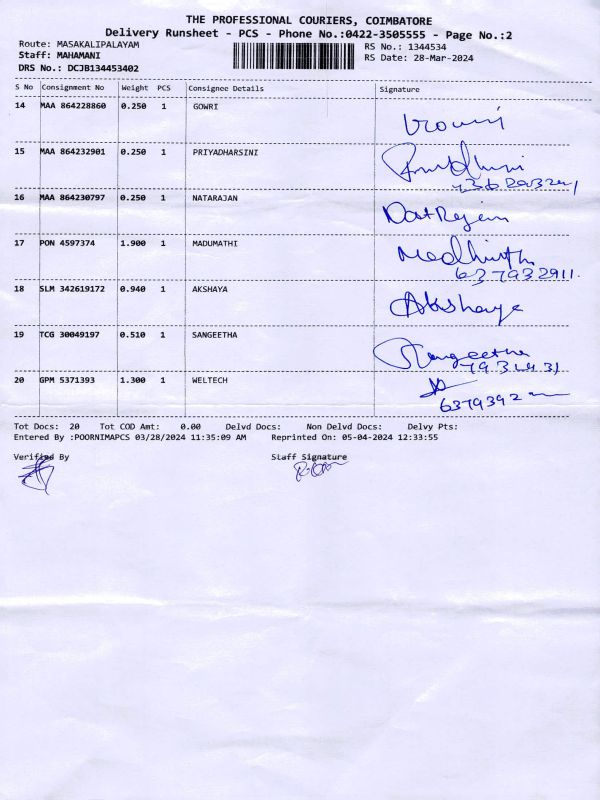 THE PROFESSIONAL COURIERS, COIMBATORE
Delivery Runsheet - PCS - Phone No.:0422-3505555 - Page No.:2
Route: MASAKALIPALAYAM RS No.: 1344534
Staff: MAHAMANI RS Date: 28-Mar-2024
DRS No.: DCJB134453402
S No Consignment No Weight PCS Consignee Details Signature
14 MAA 864228860 0.250 1 GOWRI
15 MAA 864232901 0.250 1 PRIYADHARSINI
16 MAA 864230797 0.250 1 NATARAJAN
17 PON 4597374 1.900 1 MADUMATHI
637932911.
18 SLM 342619172 0.940 1 AKSHAYA Akshaya
19 TCG 30049197 0.510 1 SANGEETHA Sangeetha
20 GPM 5371393 1.300 1 WELTECH
6379392
Tot Docs: 20 Tot COD Amt: 0.00 Delvd Docs: Non Delvd Docs: Delvy Pts:
Entered By :POORNIMAPCS 03/28/2024 11:35:09 AM Reprinted On: 05-04-2024 12:33:55
Verified By Staff Signature